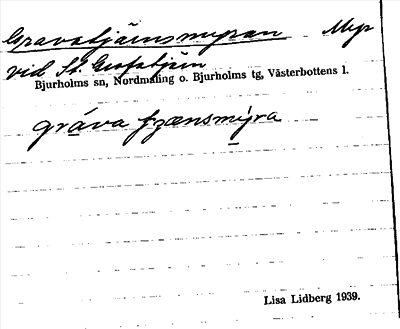 Gravatjärnsmyran Myr
vid St. Gravatjärn
Bjurholms sn, Nordmaling o. Bjurholms tg, Västerbottens l.
gráva
Lisa Lidberg 1939.